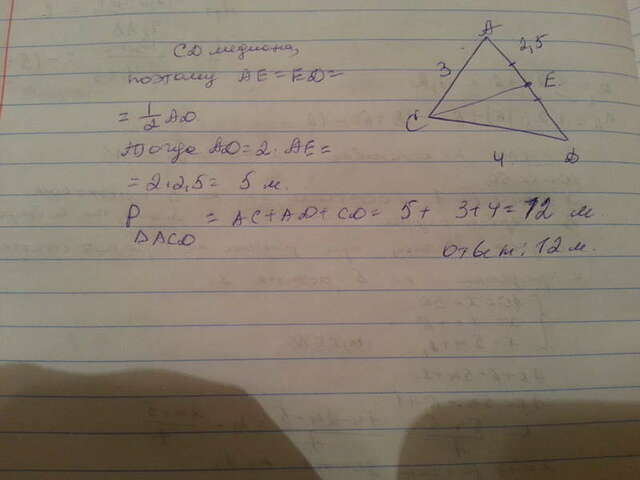 CD медиана,
поэтому AE = ED =
= 1/2 AD
Тогда AD = 2 · AE =
= 2 · 2,5 = 5 м.
P = AC + AD + CD = 5 + 3 + 4 = 12 м.
ΔACD
Ответ: 12 м.
A
2,5
3
E
C
D
4